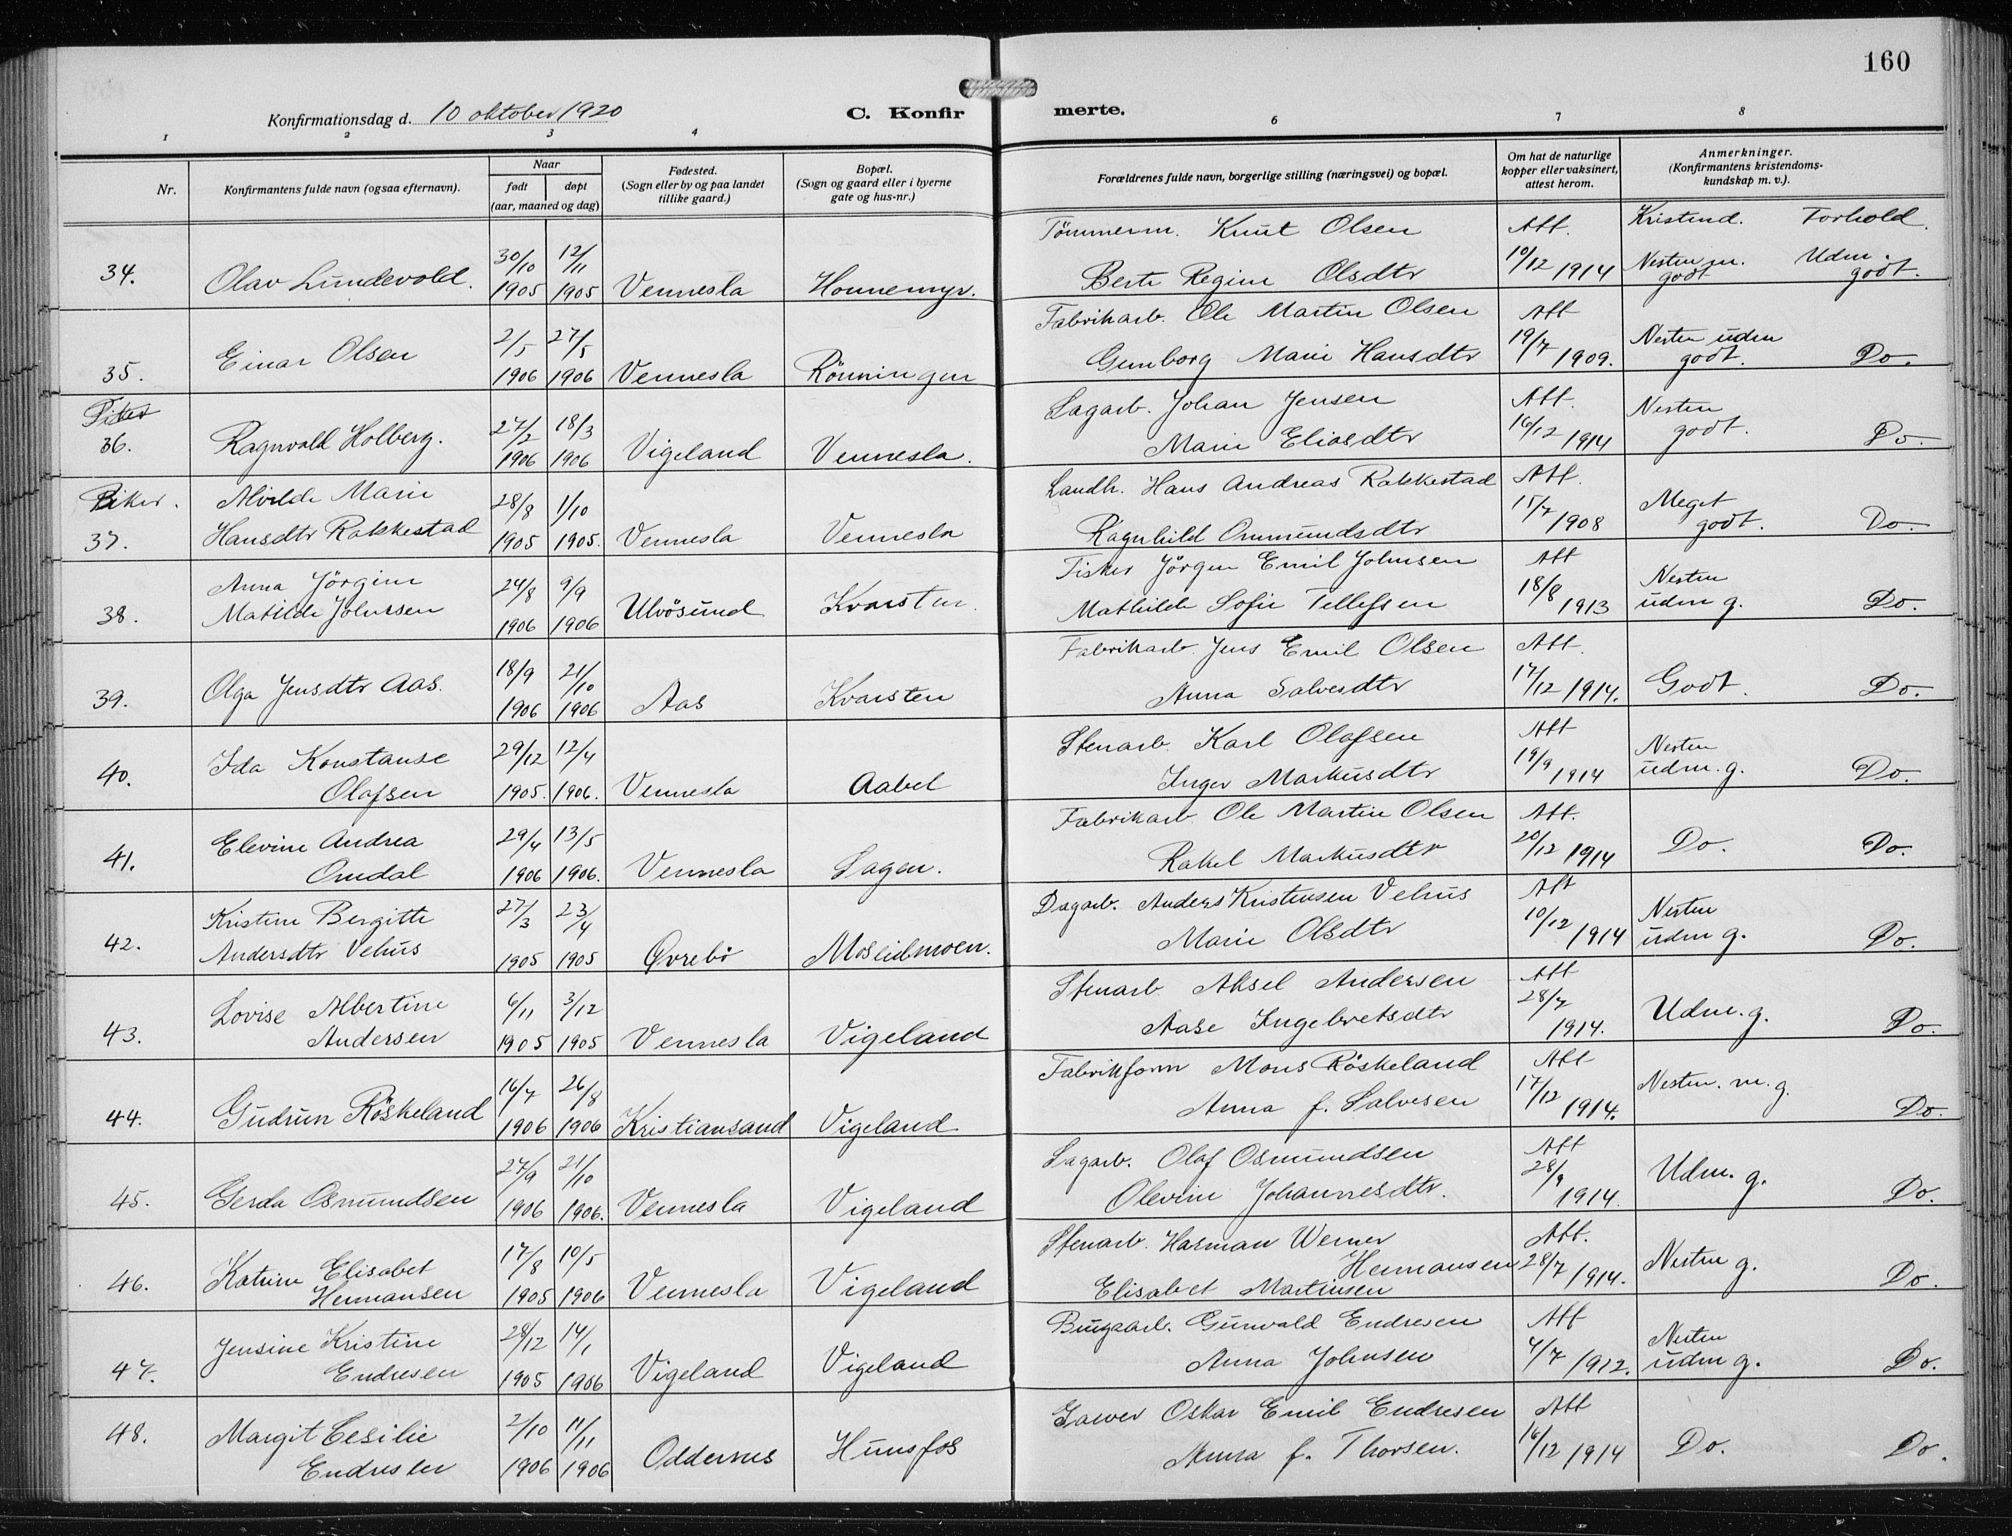 160
Konfirmationsdag d. 10 oktober 1920
C. Konfirmerte.
1 2 3 4 6 7 8
Nr.
Konfirmantens fulde navn (ogsaa efternavn).
Naar
født døpt
(aar, maaned og dag)
Fødested.
(Sogn eller by og paa landet
tillike gaard.)
Bopæl.
(Sogn og gaard eller i byerne
gate og hus-nr.)
Forældrenes fulde navn, borgerlige stilling (næringsvei) og bopæl.
Om hat de naturlige
kopper eller vaksinert,
attest herom.
Anmerkninger.
(Konfirmantens kristendoms-
kundskap m. v.).
Kristend. Forhold.
34. Olav Lundevold. 30/10 1905 12/11 1905 Vennesla Honnemyr.
Tömmerm. Knut Olsen Att.
Berte Regine Olsdtr 10/12 1914 Nesten m. godt Udm. godt.
35. Einar Olsen 2/5 1906 27/5 1906 Vennesla Rönningen
Fabrikarb. Ole Martin Olsen Att
Gunborg Marie Hansdtr 19/7 1909. Nesten udm godt. Do.
36. Ragnvald Holberg. 27/2 1906 18/3 1906 Vigeland Vennesla.
Sagarb. Johan Jensen Att.
Marie Eliasdtr 16/12 1914 Nesten godt. Do.
Piker.
37. Alvilde Marie Hansdtr Rakkestad 28/8 1905 1/10 1905. Vennesla Vennesla
Landh. Hans Andreas Rakkestad Att.
Ragnhild Ommundsdtr 15/7 1908 Meget godt. Do.
38. Anna Jörgine Matilde Johnsen 24/8 1906 9/9 1906 Ulvösund Kvarsten.
Fisker Jörgen Emil Johnsen Att
Mathilde Sofie Tellefsen 18/8 1913 Nesten udm g. Do.
39. Olga Jensdtr Aas. 18/9 1906 21/10 1906 Aas Kvarsten
Fabrikarb. Jens Emil Olsen Att.
Anna Salvesdtr 17/12 1914. Godt. Do.
40. Ida Konstanse Olafsen 29/12 1905. 12/4 1906. Vennesla Aabel
Stenarb. Karl Olafsen Att
Inger Markusdtr 19/9 1914 Nesten udm. g. Do.
41. Elevine Andrea Omdal 29/4 1906 13/5 1906. Vennesla Sagen.
Fabrikarb. Ole Martin Olsen Att.
Rakel Markusdtr 20/12 1914 Do. Do.
42. Kristine Bergitte Andersdtr Vehus 27/3 1905 23/4 1905 Øvrebö Moseidmoen.
Dagarb. Anders Kristensen Vehus Att
Marie Olsdtr 10/12 1914 Nesten udm g. Do.
43. Lovise Albertine Andersen 6/11 1905 3/12 1905 Vennesla Vigeland
Stenarb. Aksel Andersen Att
Aase Ingebretsdtr 28/7 1914. Udm. g. Do.
44. Gudrun Röskeland 16/7 1906 26/8 1906 Kristiansand Vigeland
Fabrikform Mons Röskeland Att
Anna f. Salvesen 17/12 1914. Nesten. m. g. Do.
45. Gerda Osmundsen 27/9 1906 21/10 1906. Vennesla Vigeland
Sagarb. Olaf Osmundsen Att
Olevine Johannesdtr. 28/9 1914. Udm. g. Do.
46. Katrine Elisabet Hermansen 17/8 1905 10/5 1906 Vennesla Vigeland
Stenarb. Harman Werner Hermansen Att.
Elisabet Martinsen 28/7 1914. Nesten g. Do.
47. Jensine Kristine Endresen 28/12 1905 14/1 1906 Vigeland Vigeland
Brugsarb. Gunvald Endresen Att
Anna Johnsen 4/7 1912. Nesten udm g. Do.
48. Margit Cesilie Endresen 2/10 1906 11/11 1906 Oddernes Hunsfos
Garver Oskar Emil Endresen Att
Anna f. Thorsen. 16/12 1914 Do. Do.